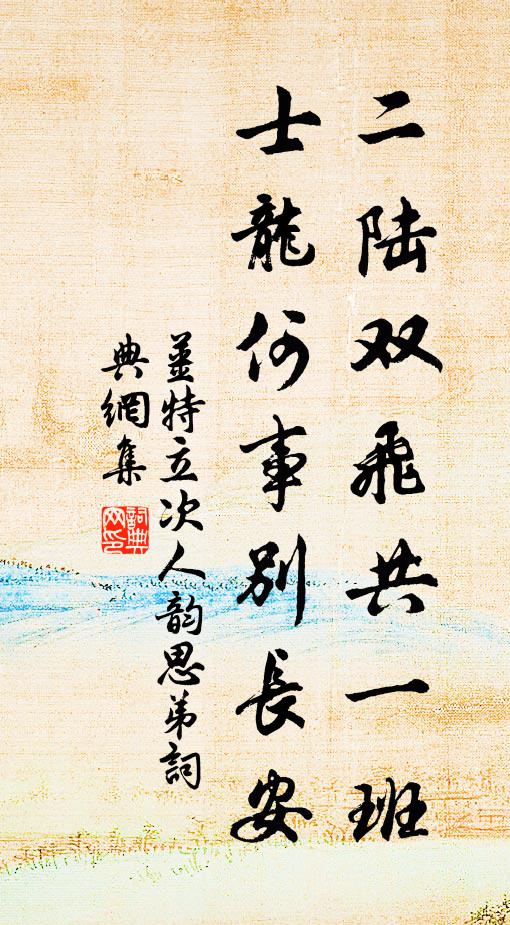 二陆双飛共一班
士龍何事别長安
姜特立次人韵思弟詞
典網集
詞典
网印